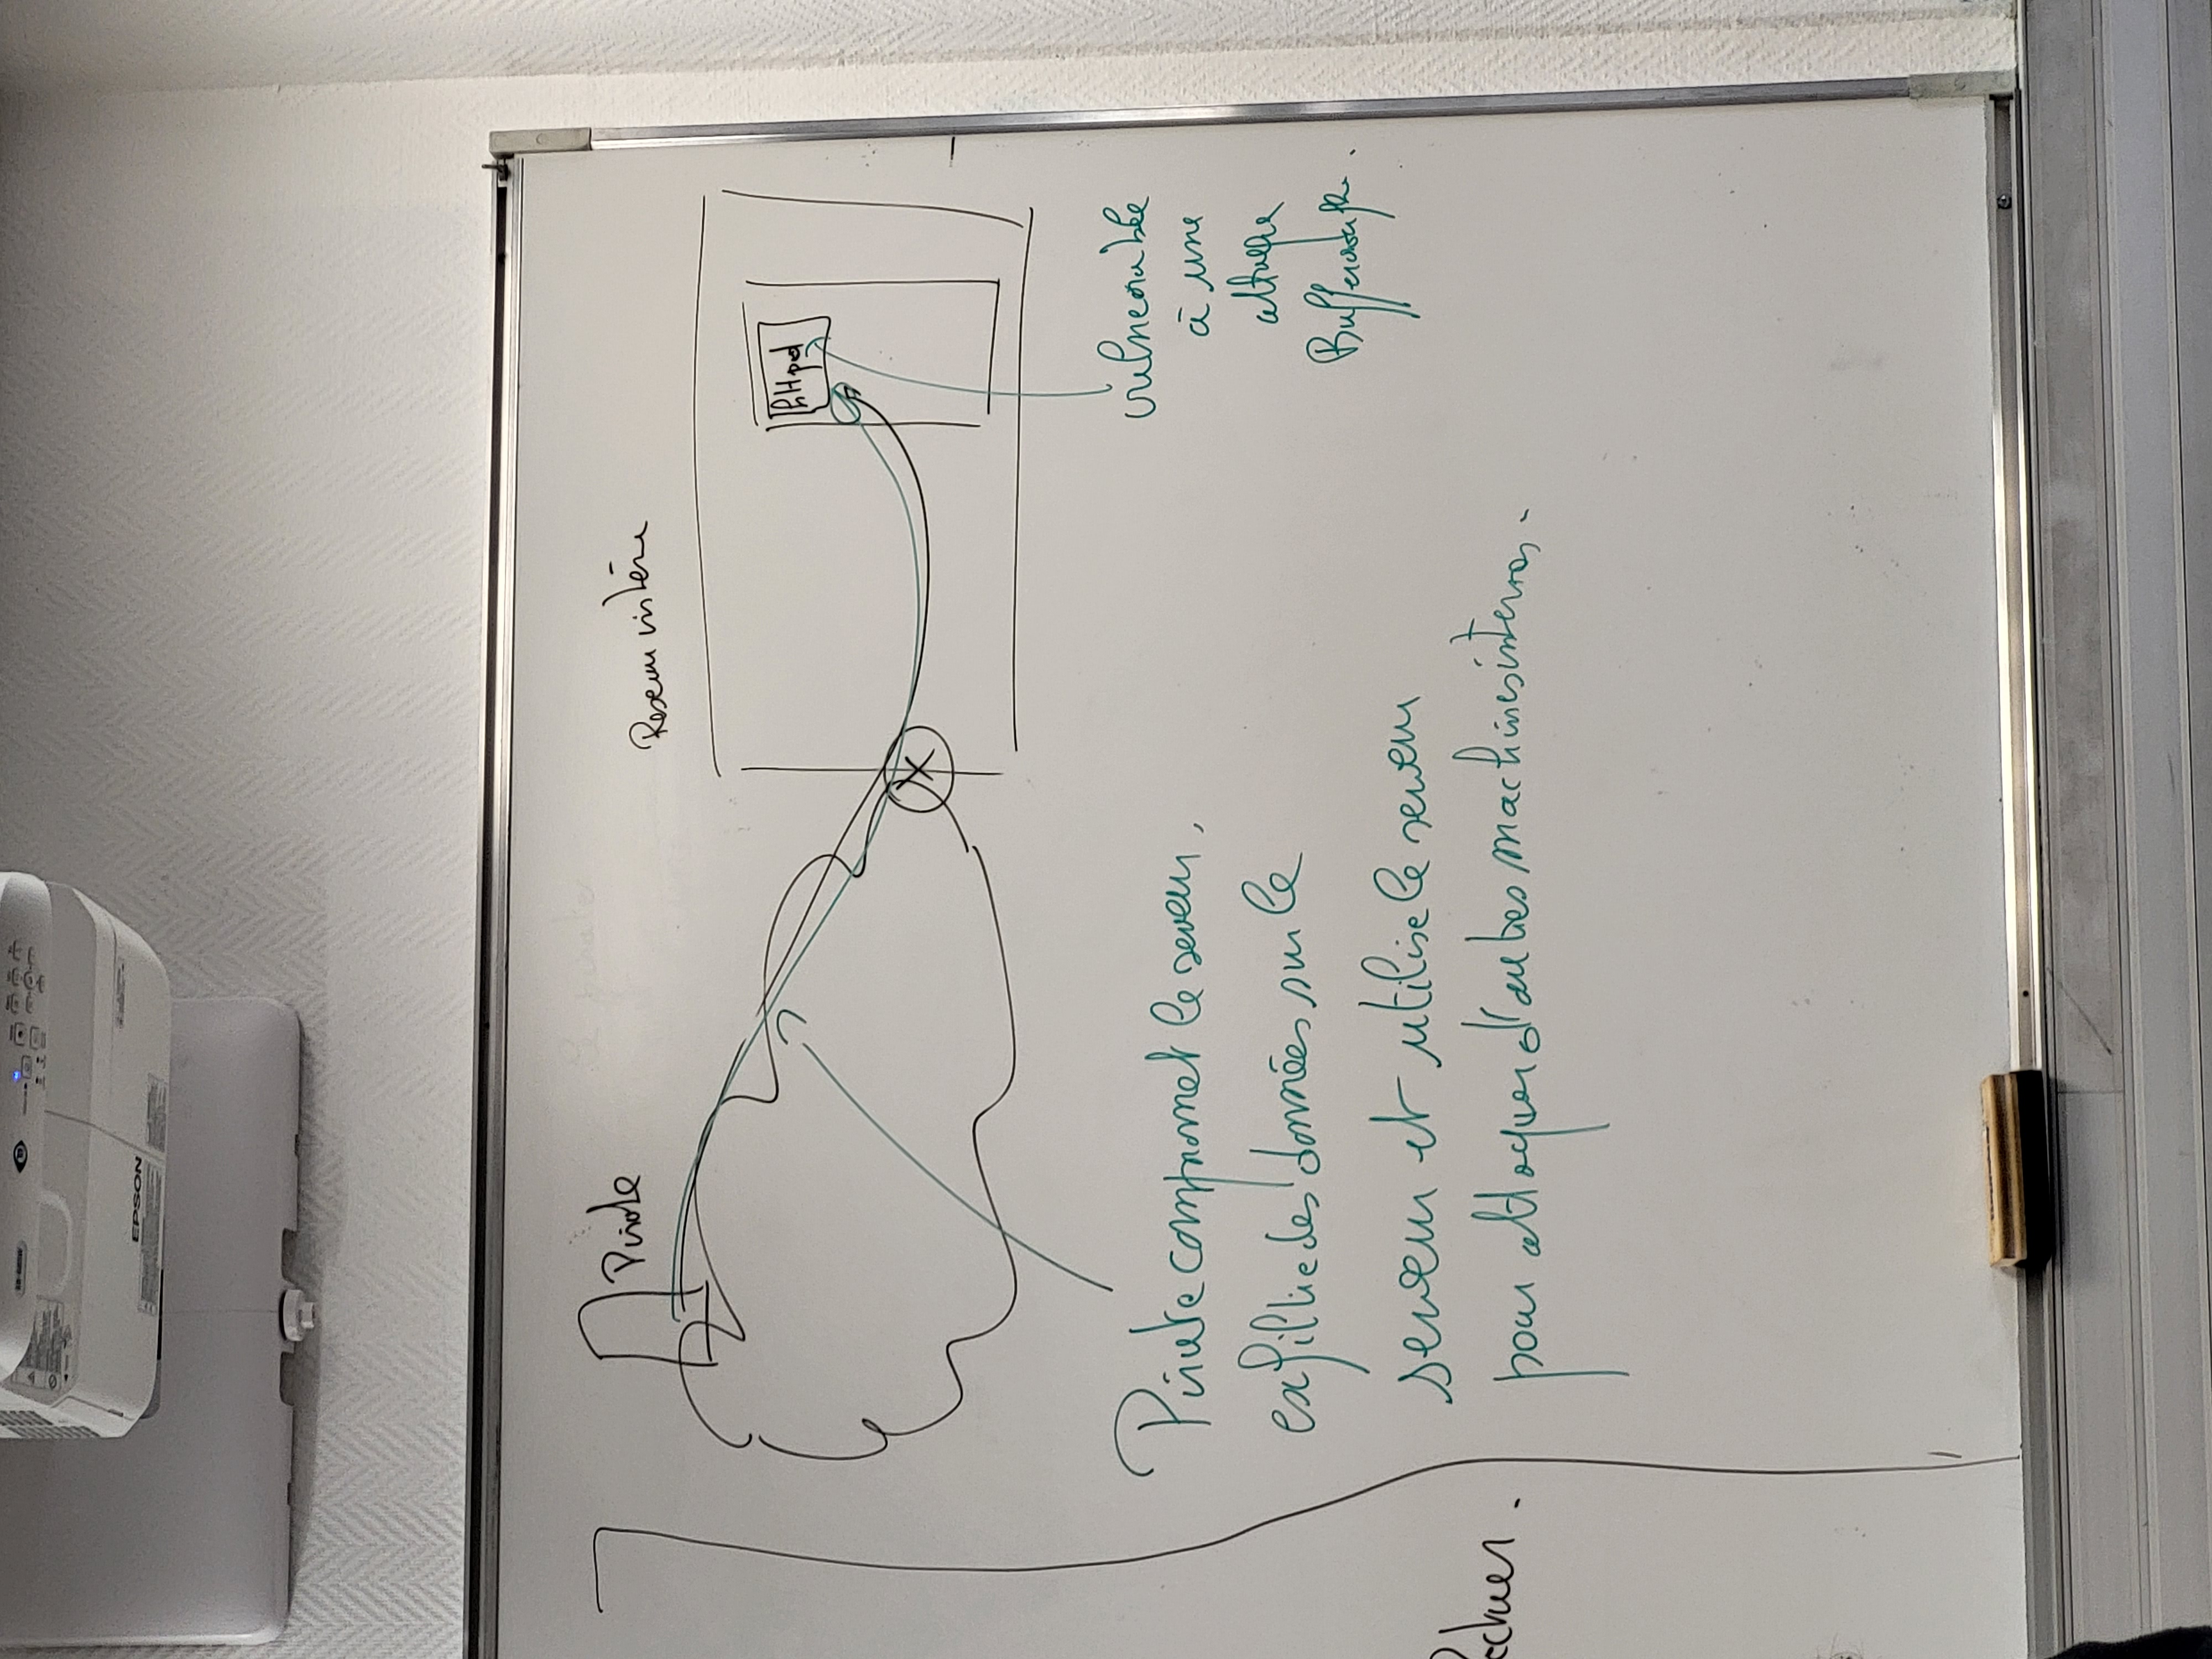 EPSON
Pirate
Reseau interne
httpd
Pirate compromet le serveur,
exfiltre des données sur le
serveur et utilise le serveur
pour attaquer d'autres machines internes.
vulnerable
à une
attaque
Bufferoverflow.